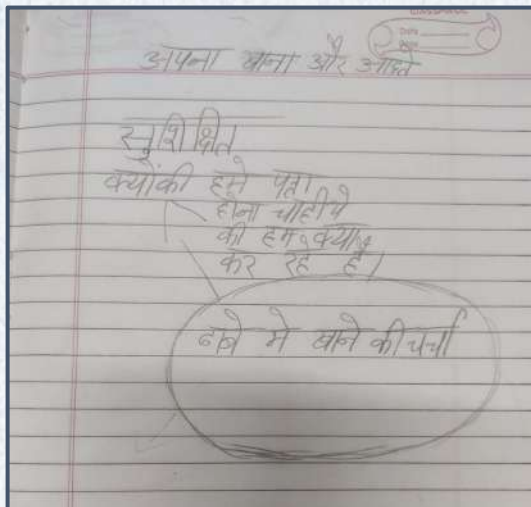 CLASSMATE
Date
Page
अपना खाना और आदते
सुशिक्षित
क्योंकी हमे पता
होना चाहीये
की हम क्या
कर रहे है।
ढाबे मे खाने की चर्चा